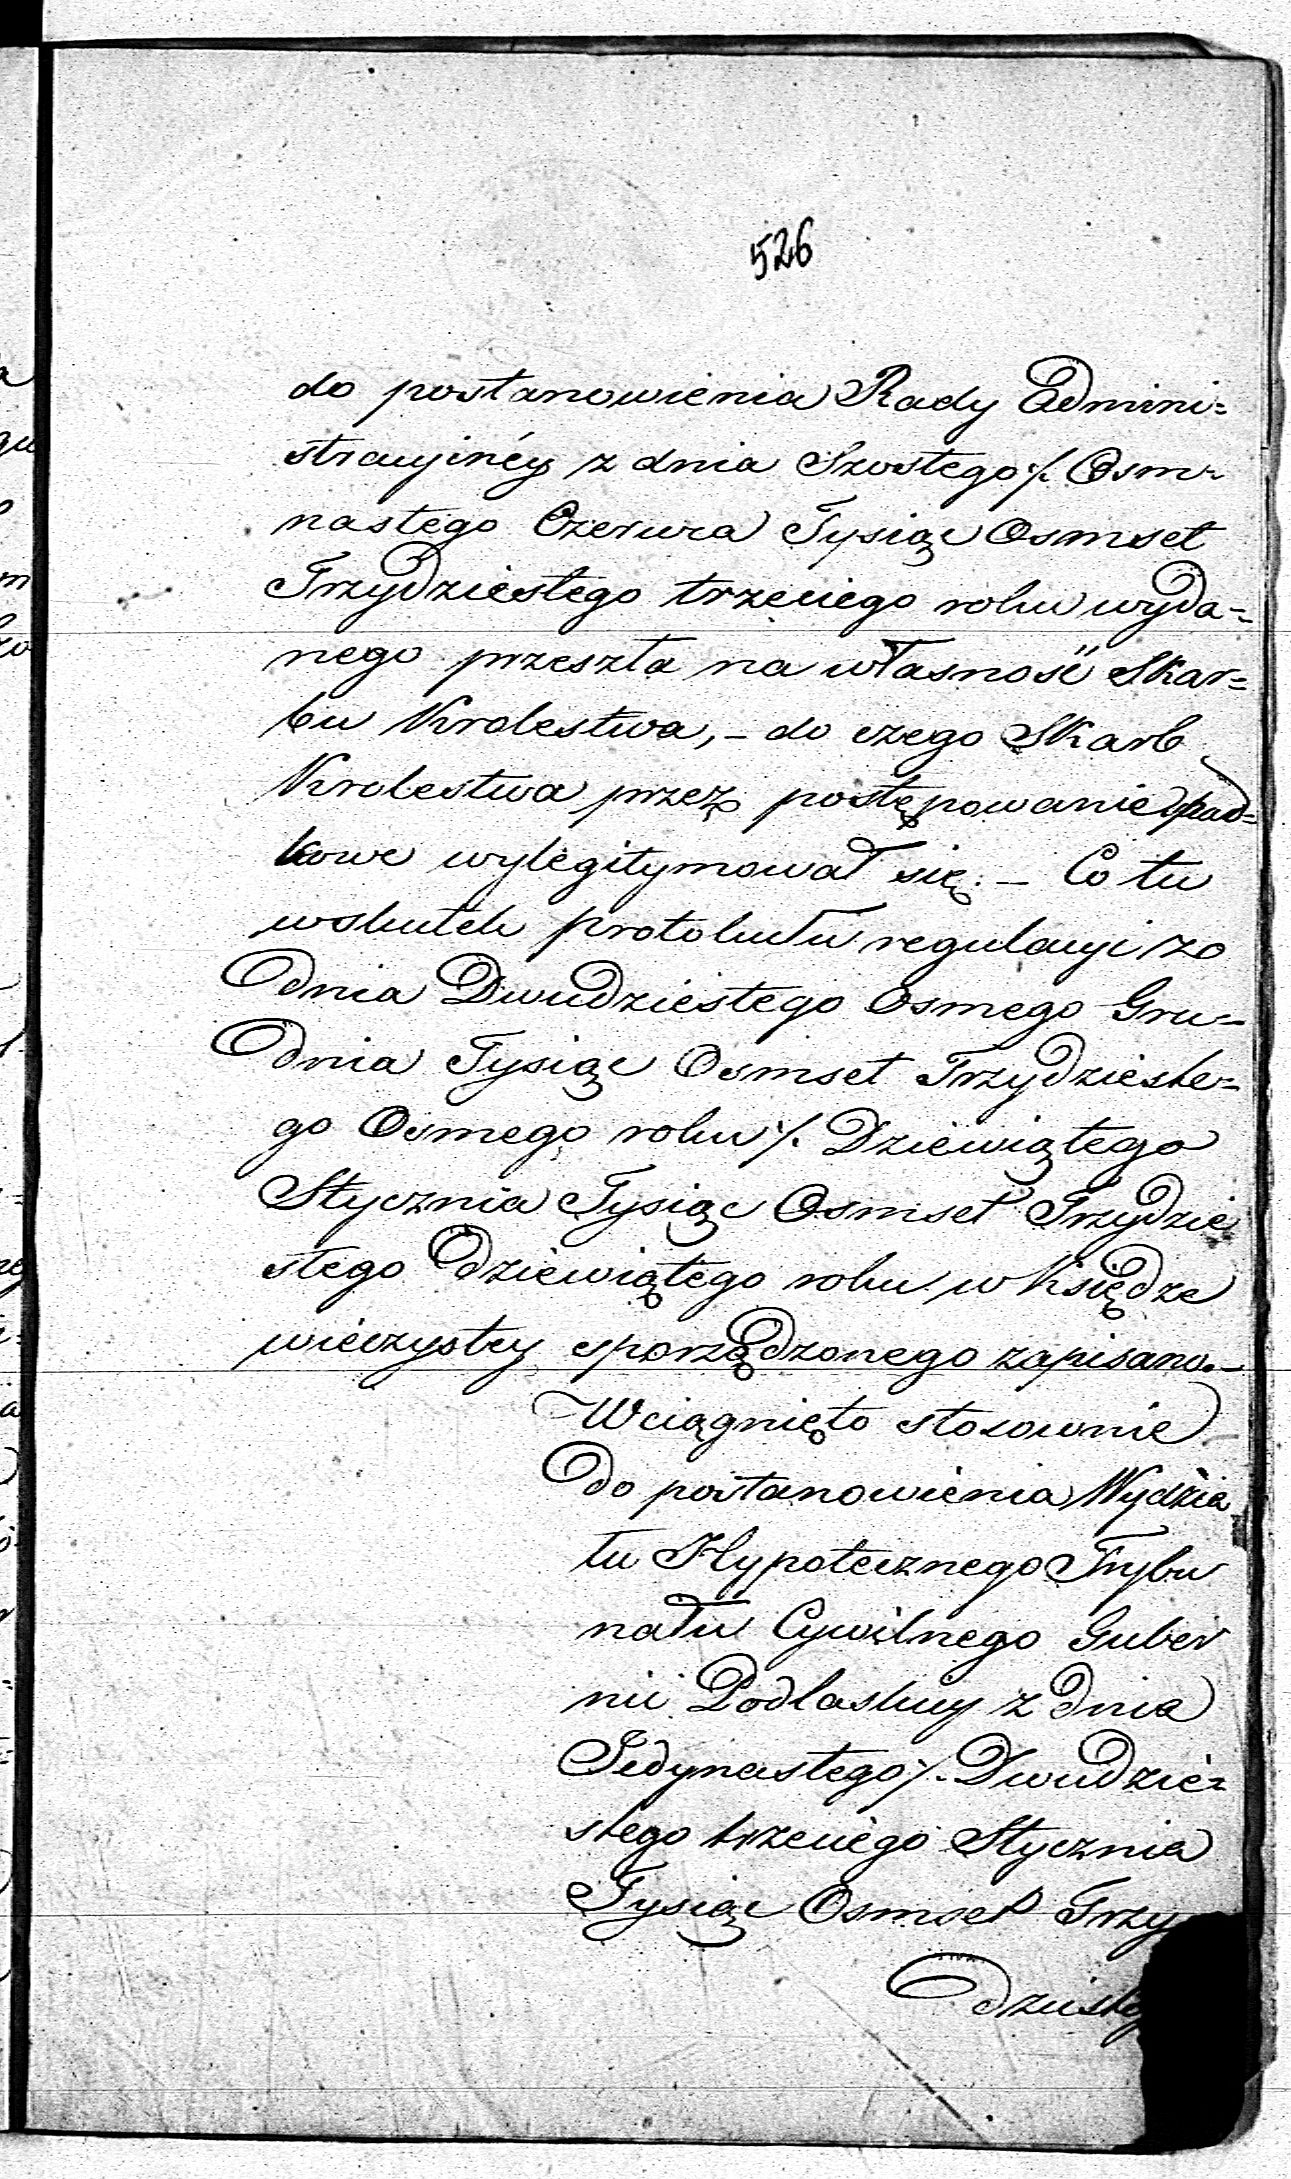 526
do postanowienia Rady Admini=
stracyjnéy z dnia Szostego /. Osm-
nastego Czerwca Tysiąc Osmset
Trzydziestego trzeciego roku wyda=
nego przeszła na własność Skar=
bu Krolestwa, – do czego Skarb
Krolestwa przez postępowanie spad=
kowe wylegitymował się. – Co tu
wskutek protokułu regulacyi ze
dnia Dwudziestego Osmego Gru-
dnia Tysiąc Osmset Trzydzieste-
go Osmego roku /. Dziewiątego
Stycznia Tysiąc Osmset Trzydzie
stego dziewiątego roku w Księdze
wieczystey sporządzonego zapisano. –
Wciągnięto stosownie
do postanowienia Wydzia
łu Hypotecznego Trybu
nału Cywilnego Guber
nii Podlaskiey z dnia
Jedynastego /. Dwudzie=
stego trzeciego Stycznia
Tysiąc Osmset Trzy